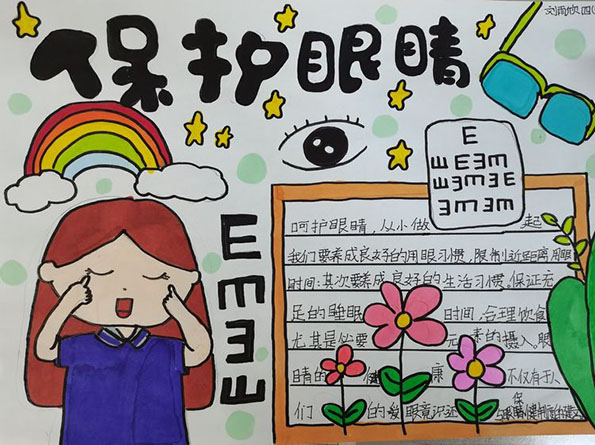 刘雨欣 四(
保护眼睛
E
E E m
E M 3 E
E m 3 m
E
m
3
m
呵护眼睛,从小做 起
我们要养成良好的用眼习惯,限制近距离用眼
时间;其次要养成良好的生活习惯,保证充
足的睡眠 时间,合理饮食
尤其是必要 元素的摄入。眼
睛的 健 康 不仅有于人
们 的爱眼意识还